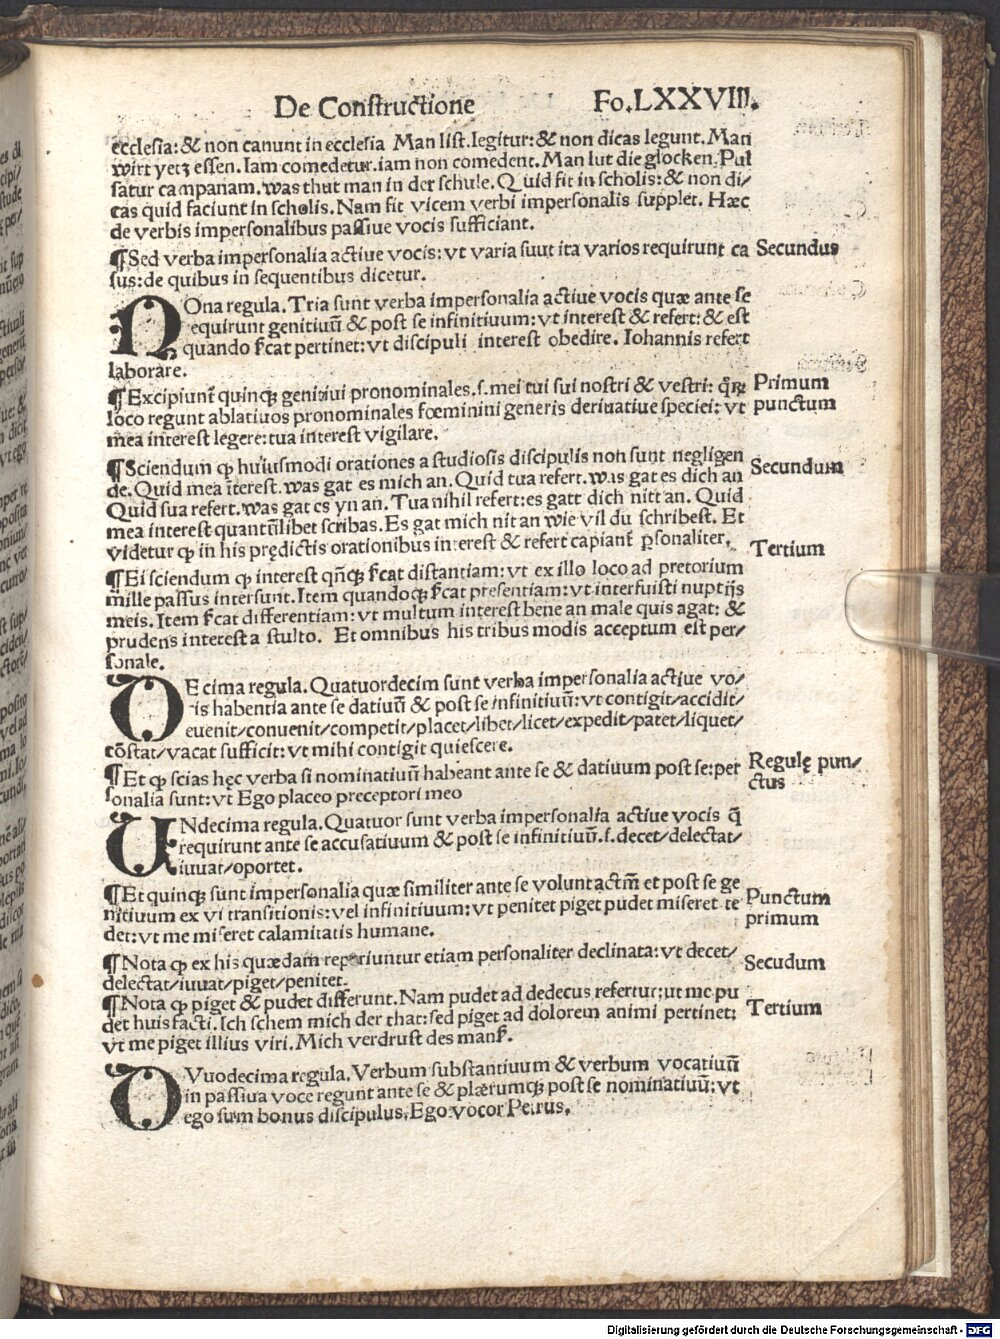 De Constructione Fo.LXXVIII.
ecclesia: & non canunt in ecclesia Man list.legitur:& non dicas legunt. Man
wirt yetz essen. Iam comedetur.iam non comedent. Man lut die glocken. Pul
satur campanam. was thut man in der schule. Quid fit in scholis: & non di/
cas quid faciunt in scholis. Nam fit vicem verbi impersonalis supplet. Hæc
de verbis impersonalibus passiue vocis sufficiant.
¶Sed verba impersonalia actiue vocis: vt varia suut ita varios requirunt ca Secundus
sus: de quibus in sequentibus dicetur.
NOna regula. Tria sunt verba impersonalia actiue vocis quæ ante se
requirunt genitiuū & post se infinitiuum: vt interest & refert: & est
quando ſcat pertinet: vt discipuli interest obedire. Iohannis refert
laborare.
¶Excipiunt quinqꝫ genitiui pronominales.s.mei tui sui nostri & vestri: qꝝ Primum
loco regunt ablatiuos pronominales fœminini generis deriuatiue speciei: vt punctum
mea interest legere: tua interest vigilare.
¶Sciendum ꝙ huiusmodi orationes a studiosis discipulis non sunt negligen Secundum
de. Quid mea īterest. was gat es mich an. Quid tua refert. was gat es dich an
Quid sua refert. was gat es yn an. Tua nihil refert: es gatt dich nitt an. Quid
mea interest quantūlibet scribas. Es gat mich nit an wie vil du schribest. Et
videtur ꝙ in his prędictis orationibus interest & refert capiant ꝑsonaliter. Tertium
¶Ei sciendum ꝙ interest qn̄qꝫ ſcat distantiam: vt ex illo loco ad pretorium
mille passus intersunt. Item quandoqꝫ ſcat presentiam: vt interfuisti nuptijs
meis. Item ſcat differentiam: vt multum interest bene an male quis agat: &
prudens interest a stulto. Et omnibus his tribus modis acceptum est per/
sonale.
DEcima regula. Quatuordecim sunt verba impersonalia actiue vo/
is habentia ante se datiuū & post se infinitiuū: vt contigit/accidit/
euenit/conuenit/competit/placet/libet/licet/expedit/patet/liquet/
cōstat/vacat sufficit: vt mihi contigit quiescere.
¶Et ꝙ scias hęc verba si nominatiuū habeant ante se & datiuum post se: per Regulę pun/
sonalia sunt: vt Ego placeo preceptori meo ctus
UNdecima regula. Quatuor sunt verba impersonalia actiue vocis q̄
requirunt ante se accusatiuum & post se infinitiuū.s.decet/delectat/
iuuat/oportet.
¶Et quinqꝫ sunt impersonalia quæ similiter ante se volunt actm̄ et post se ge Punctum
nitiuum ex vi transitionis: vel infinitiuum: vt penitet piget pudet miseret te primum
det: vt me miseret calamitatis humane.
¶Nota ꝙ ex his quædam reperiuntur etiam personaliter declinata: vt decet/ Secudum
delectat/iuuat/piget/penitet.
¶Nota ꝙ piget & pudet differunt. Nam pudet ad dedecus refertur: ut me pu Tertium
det huis facti. Ich schem mich der that: sed piget ad dolorem animi pertinet:
vt me piget illius viri. Mich verdrust des mans.
DVuodecima regula. Verbum substantiuum & verbum vocatiuū
in passiua voce regunt ante se & plærumqꝫ post se nominatiuū: vt
ego sum bonus discipulus. Ego vocor Petrus.
Digitalisierung gefördert durch die Deutsche Forschungsgemeinschaft - DFG